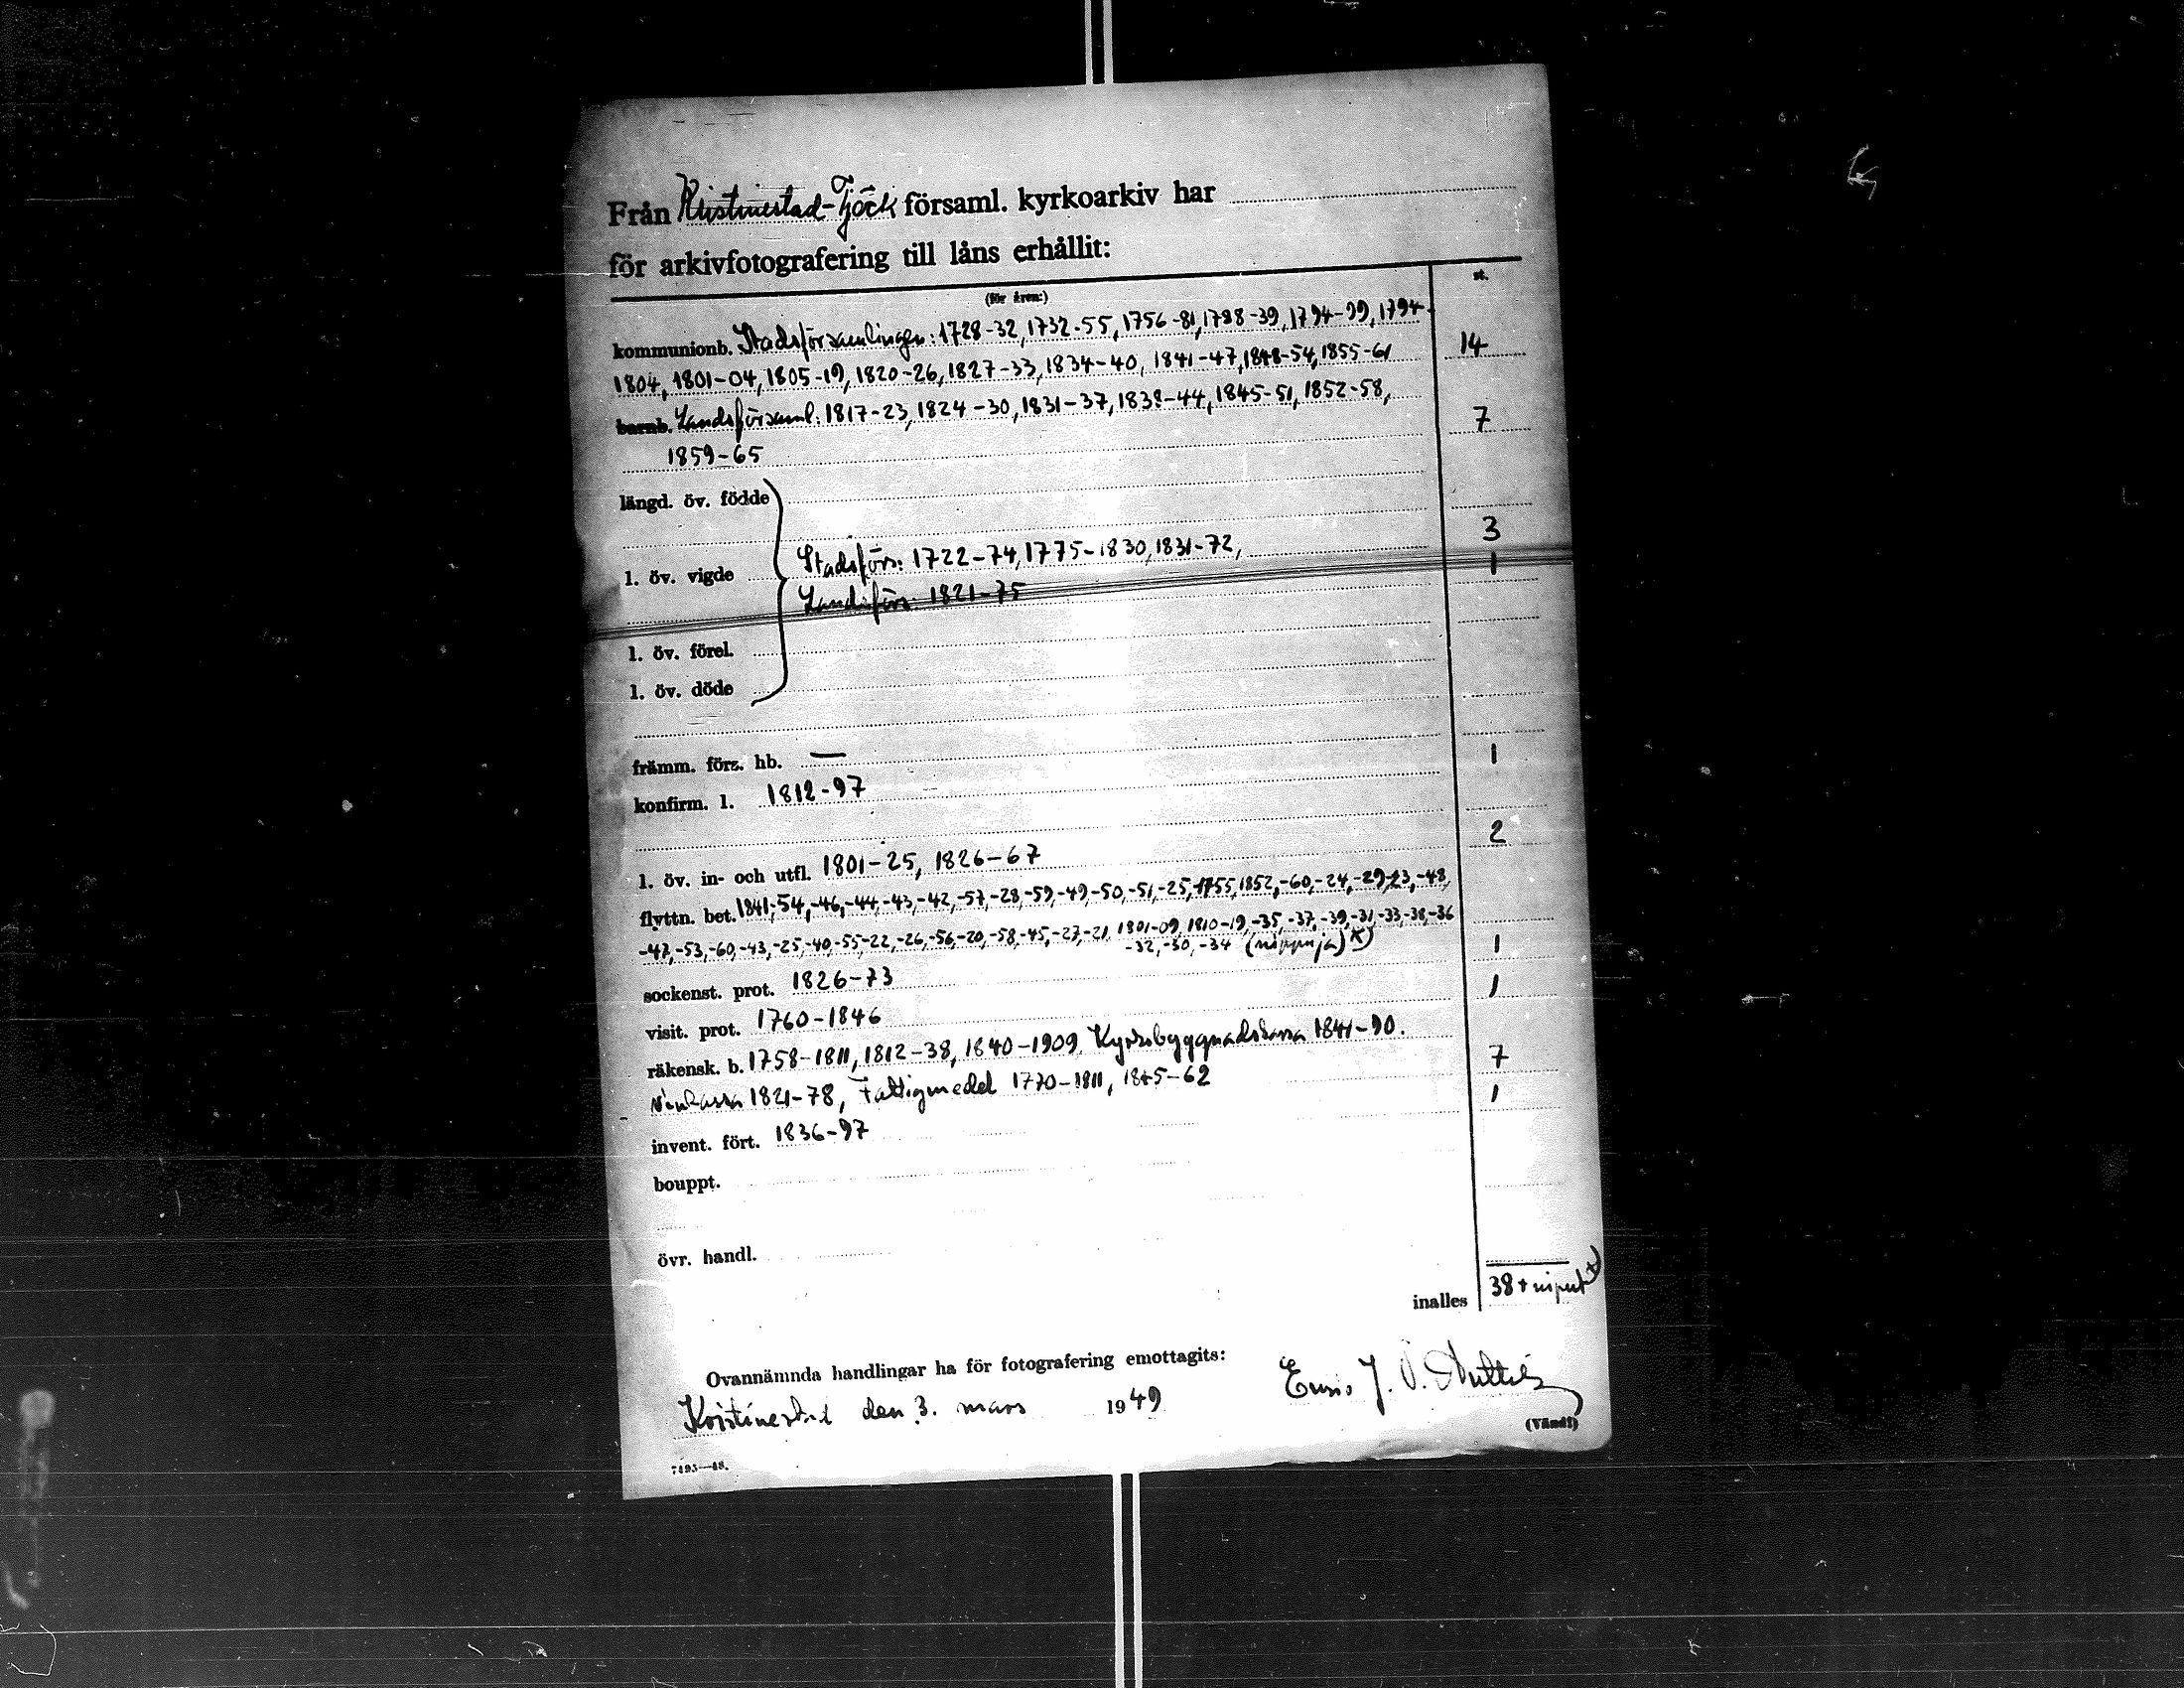 Från Kristinestad-Tjöck församl. kyrkoarkiv har
för arkivfotografering till låns erhållit:
(för åren:) st.
kommunionb. Stadsförsamlingen: 1728-32, 1732-55, 1756-81, 1788-39, 1794-99, 1794-
1804, 1801-04, 1805-19, 1820-26, 1827-33, 1834-40, 1841-47, 1848-54, 1855-61 14
barnb. Landsförsaml: 1817-23, 1824-30, 1831-37, 1838-44, 1845-51, 1852-58, 7
1859-65
längd. öv. födde
l. öv. vigde Stadsförs: 1722-74, 1775-1830, 1831-72, 3
Landsförs: 1821-75 1
l. öv. förel.
l. öv. döde
främm. förs. hb. —
konfirm. l. 1812-97 1
l. öv. in- och utfl. 1801-25, 1826-67 2
flyttn. bet. 1841,-54,-46,-44,-43,-42,-57,-28,-59,-49,-50,-51,-25, 1755, 1852,-60,-24,-29,-23,-48,
-47,-53,-60,-43,-25,-40,-55-22,-26,-56,-20,-58,-45,-27,-21, 1801-09, 1810-19,-35,-37,-39,-31,-33,-38,-36
-32,-30,-34 (nippuja) x)
sockenst. prot. 1826-73 1
visit. prot. 1760-1846 1
räkensk. b. 1758-1811, 1812-38, 1840-1909, Kyrkobyggnadskassa 1841-90.
1821-78, Fattigmedel 1770-1811, 1845-62 7
invent. fört. 1836-97 1
bouppt.
övr. handl.
inalles 38 + x)
Ovannämnda handlingar ha för fotografering emottagits:
Kristinestad den 3. mars 1949
J.
(Vänd!)
7495—48.